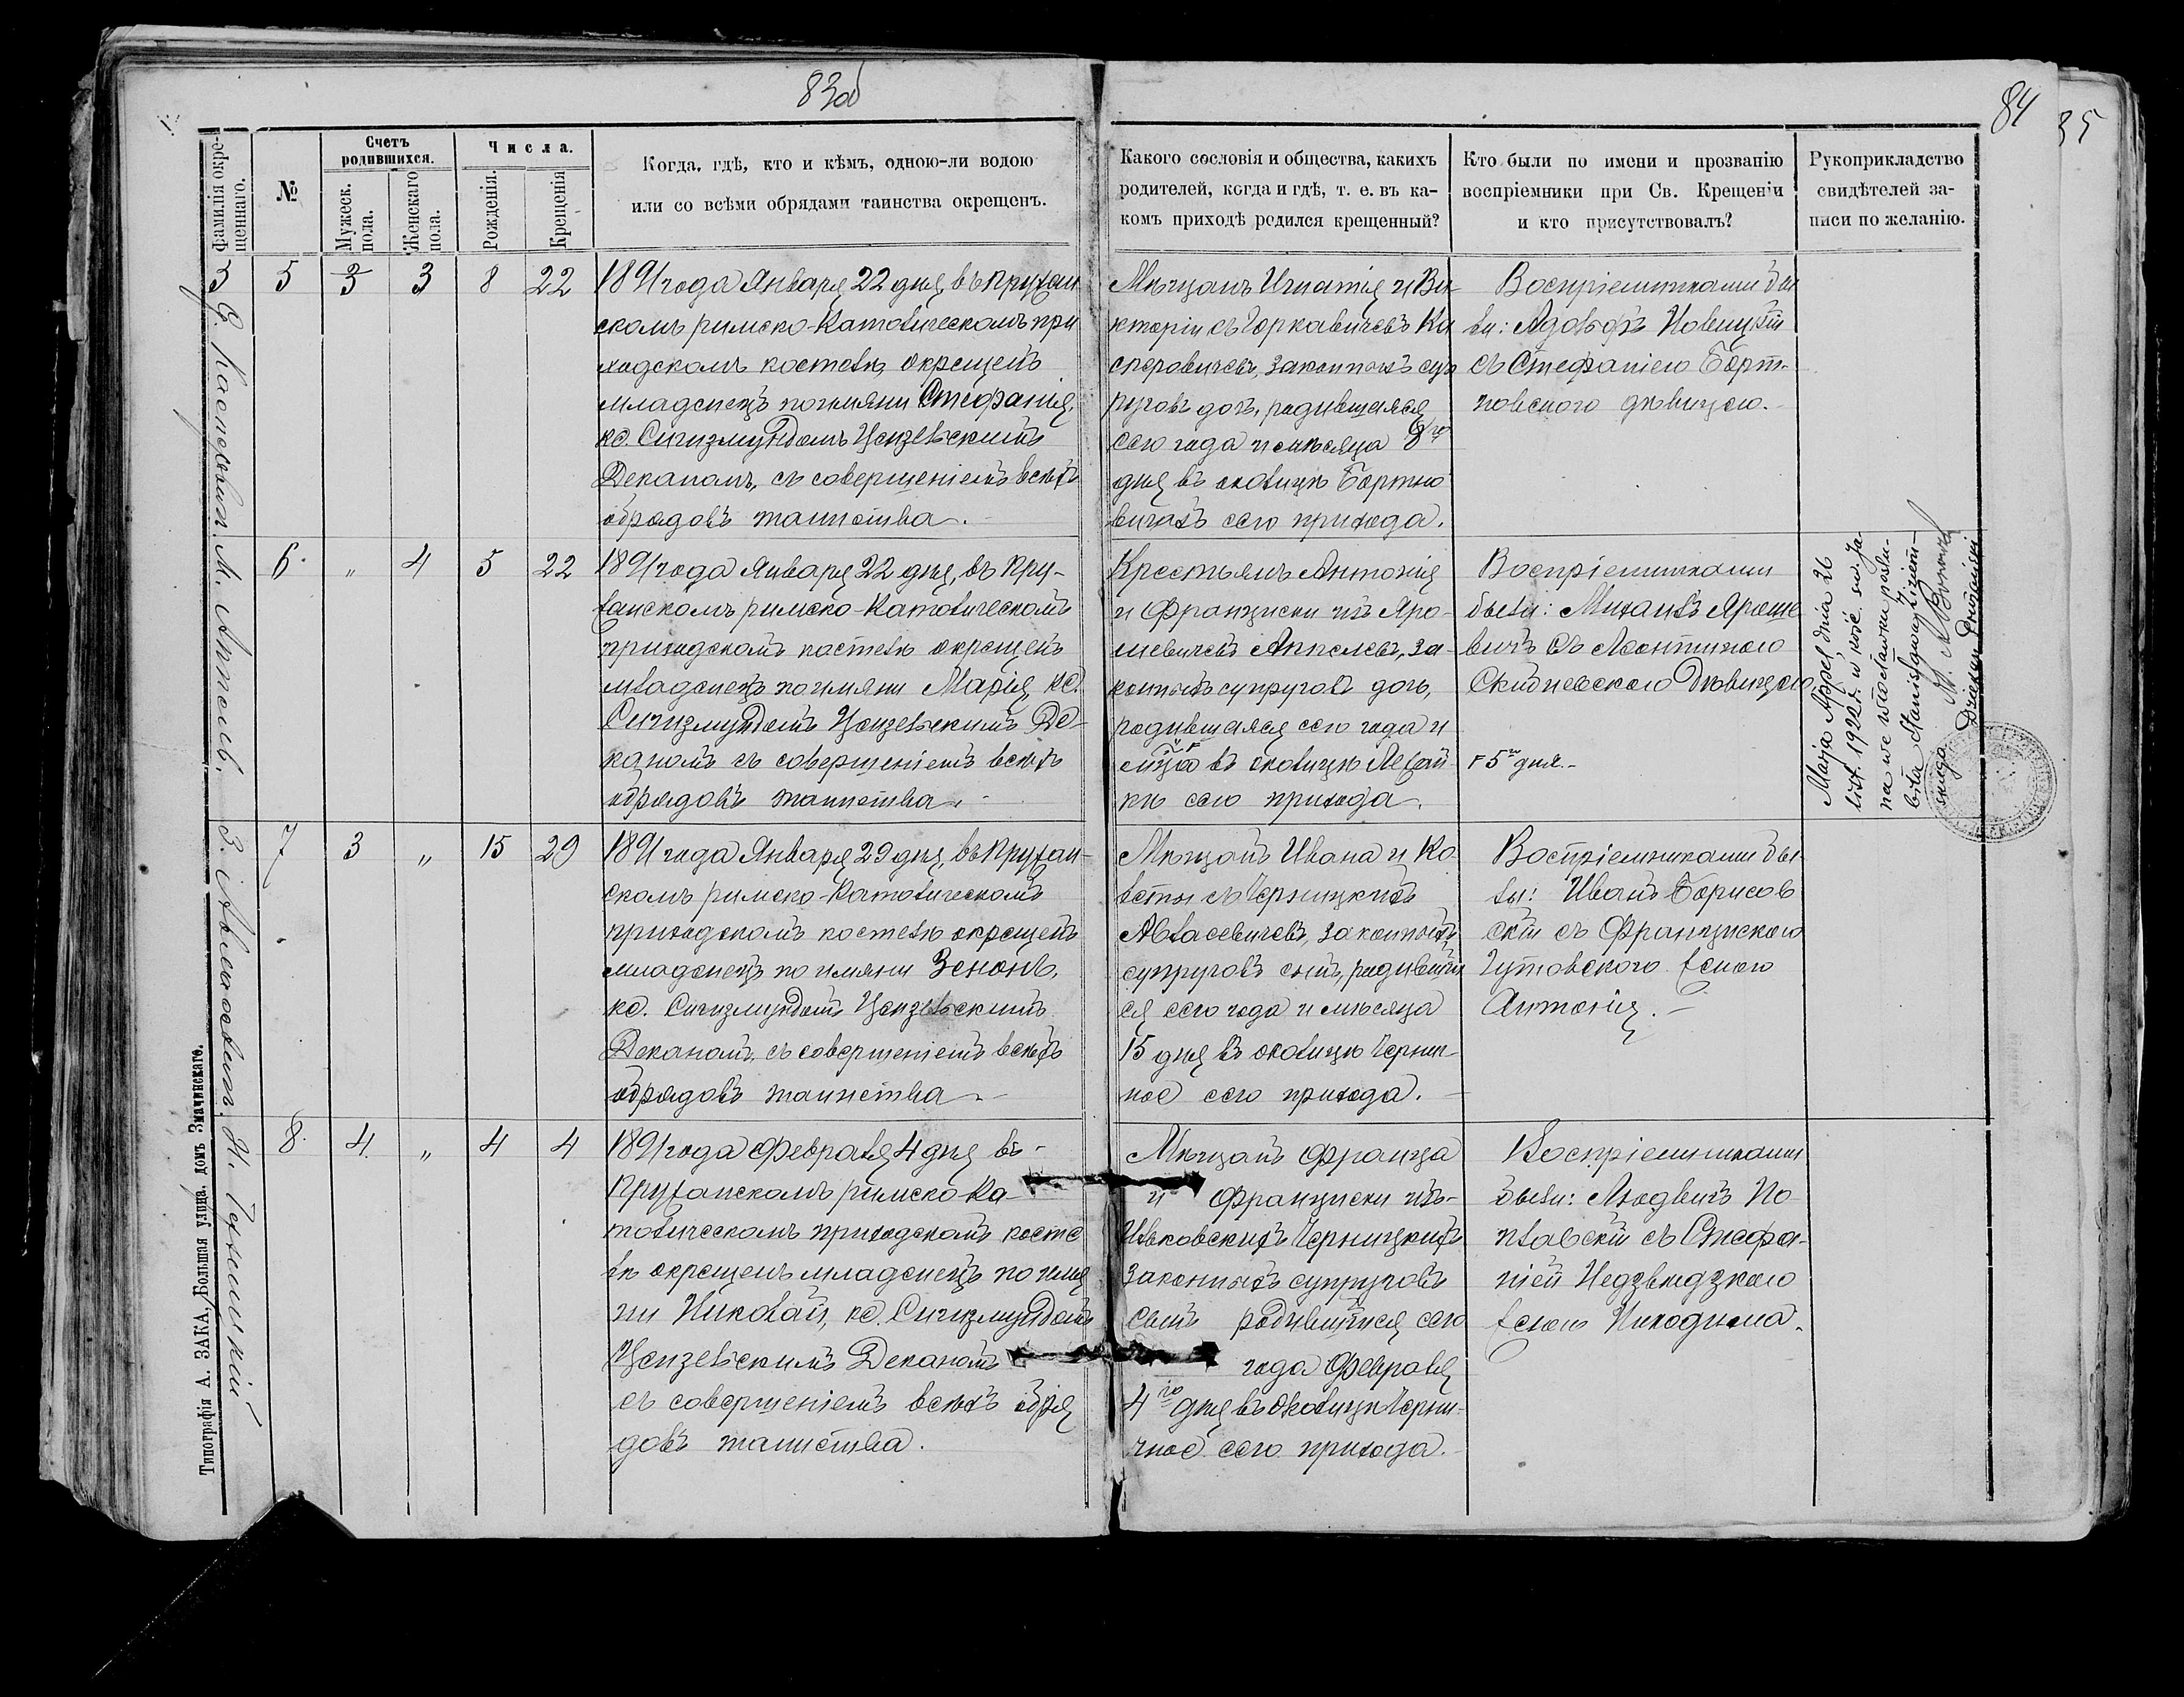 83об
84
85
фамилія окре-
щеннаго.
№
Счетъ
родившихся.
Мужеск.
пола.
Женскаго
пола.
Числа.
Рожденія.
Крещенія
Когда, гдѣ, кто и кѣмъ, одною-ли водою
или со всѣми обрядами таинства окрещенъ.
Какого сословія и общества, какихъ
родителей, когда и гдѣ, т. е. въ ка-
комъ приходѣ родился крещенный?
Кто были по имени и прозванію
воспріемники при Св. Крещеніи
и кто присутствовалъ?
Рукоприкладство
свидѣтелей за-
писи по желанію.
5 3 3 8 22
1891 года Января 22 дня, въ Пружан
скомъ римско-Католическомъ при
ходскомъ костелѣ, окрещенъ
младенецъ по имяни Стефанія,
кс. Сигизмундомъ Цензевскимъ
Деканомъ, съ совершеніемъ всѣхъ
обрядовъ таинства.
Мѣщанъ Игнатія и Ви-
кторіи съ Горкавичевъ Ка
сперовичевъ, законныхъ суп
руговъ дочь, родившаяся
сего года и мѣсяца 8го
дня въ околицѣ Бортно
вичахъ сего прихода.
Воспріемниками бы
ли: Адольфъ Новицкій
съ Стефаніею Борт-
новскою дѣвицею.
М. Аппель.
6. " 4 5 22
1891 года Января 22 дня, въ Пру-
жанскомъ римско-Католическомъ
приходскомъ костелѣ окрещенъ
младенецъ по имяни Марія кс.
Сигизмундомъ Цензевскимъ Де-
каномъ съ совершеніемъ всѣхъ
обрядовъ таинства.
Крестьянъ Антонія
и Франциски изъ Яро-
шевичевъ Аппелевъ, за-
конныхъ супруговъ дочь,
родившаяся сего года и
мѣца въ околицѣ
сего прихода.
Воспріемниками
были: Михаилъ Яроше
вичъ съ Леонтиною
дѣвицею
г 5го дня.
Marja Appel dnia 26
list. 1922 r. w kośc. św. Ja-
na we Włocławku poślu-
biła Stanisława
Dziekan Prużański
7 3 " 15 29
1891 года Января 29 дня, въ Пружан-
скомъ римско-Католическомъ
приходскомъ костелѣ окрещенъ
младенецъ по имяни Зенонъ,
кс. Сигизмундомъ Цензевскимъ
Деканомъ, съ совершеніемъ всѣхъ
обрядовъ таинства
Мѣщанъ Ивана и Ко-
леты съ Черницкихъ
Авласевичевъ, законныхъ
супруговъ сынъ, родившій
ся сего года и мѣсяца
15 дня въ околицѣ Чернич-
ное сего прихода.
Воспріемниками бы-
ли: Иванъ Борисов
скій съ Францискою
Гутовскою женою
Антонія.
8. 4. " 4 4
1891 года Февраля 4 дня въ
Пружанскомъ римско-Ка-
толическомъ приходскомъ косте
лѣ окрещенъ младенецъ по имя
ни Николай, кс. Сигизмундомъ
Цензевскимъ Деканомъ
съ совершеніемъ всѣхъ обря
довъ таинства.
Мѣщанъ Франца
и Франциски изъ
Ивковскихъ Черницкихъ
законныхъ супруговъ
сынъ родившійся сего
года Февраля
4го дня въ околицѣ Черни-
чное сего прихода.
Воспріемниками
были: Людвигъ По-
плавскій съ Стефа-
ніей Недзвѣдзкою
женою Никодима.
Типографія А. ЗАКА, Большая улица, домъ Змачинскаго.